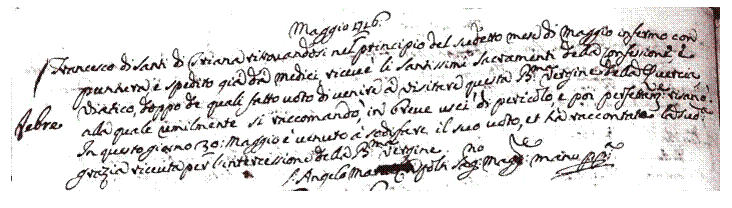 Maggio 1716.
Francesco di Santi di Criana ritrovandosi nel principio del sudetto mese di Maggio infermo con
puntura e spedito già da medici, ricevè li Santissimi Sacramenti della Confessione e
Viatico, doppo de quali fatto voto di venire à visitare questa B. Vergine della Quercia
febre alla quale umilmente si raccomandò, in breve uscì di pericolo, e poi perfettam. risanò.
In questo giorno 30: Maggio è venuto à sodisfare il suo voto, et hà raccontato la sud.
grazia ricevuta per l'intercessione della B. Vergine
F. Angelo Mag. manu pp.